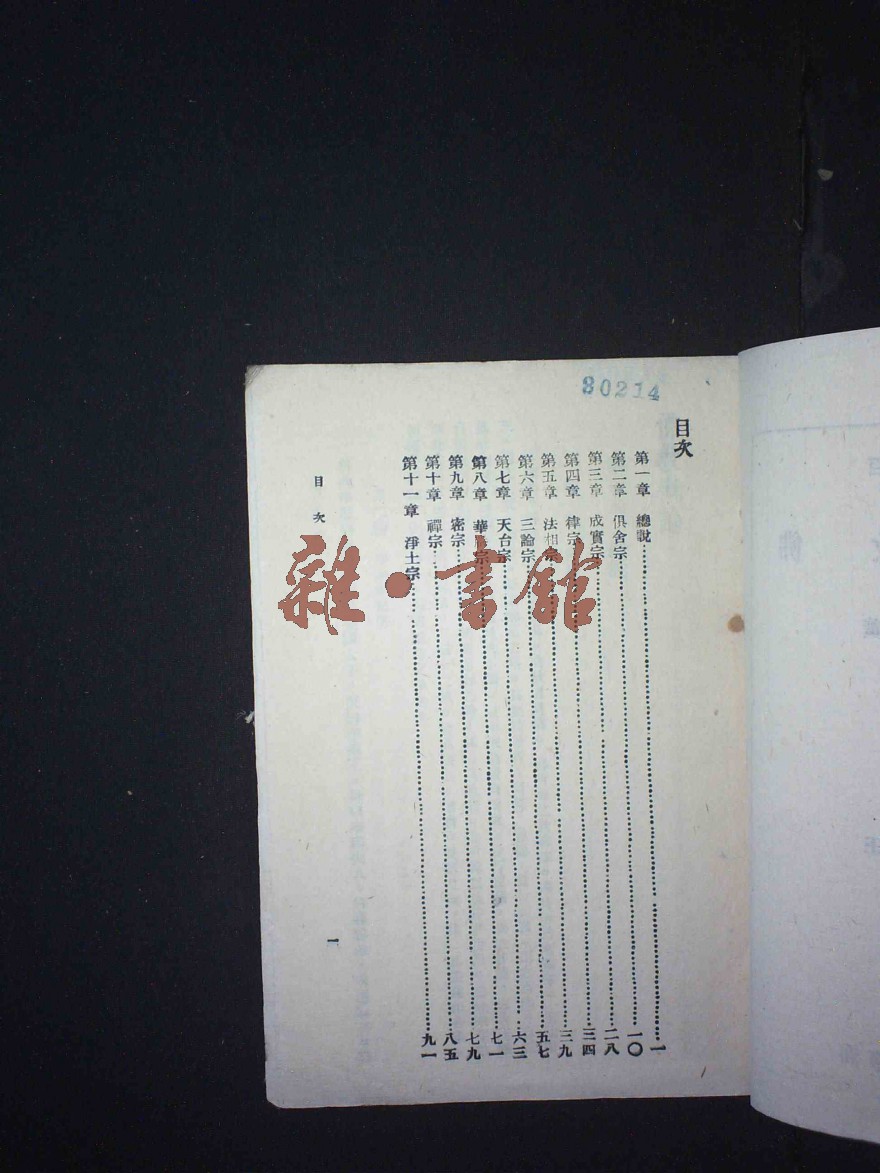 30214
目次
第一章 總說 一
第二章 俱舍宗 一〇
第三章 成實宗 二八
第四章 律宗 三四
第五章 法相宗 三九
第六章 三論宗 五七
第七章 天台宗 六三
第八章 華宗 七一
第九章 密宗 七九
第十章 禪宗 八五
第十一章 淨土宗 九一
目次
一
雜·書館
佛